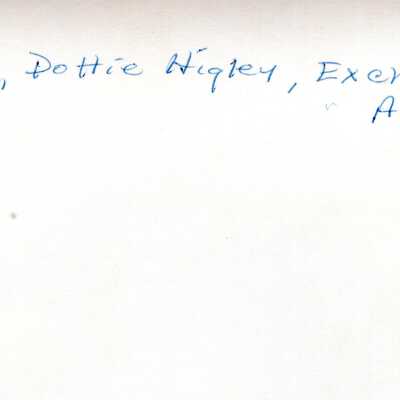 , Dottie Higley, Exer
A